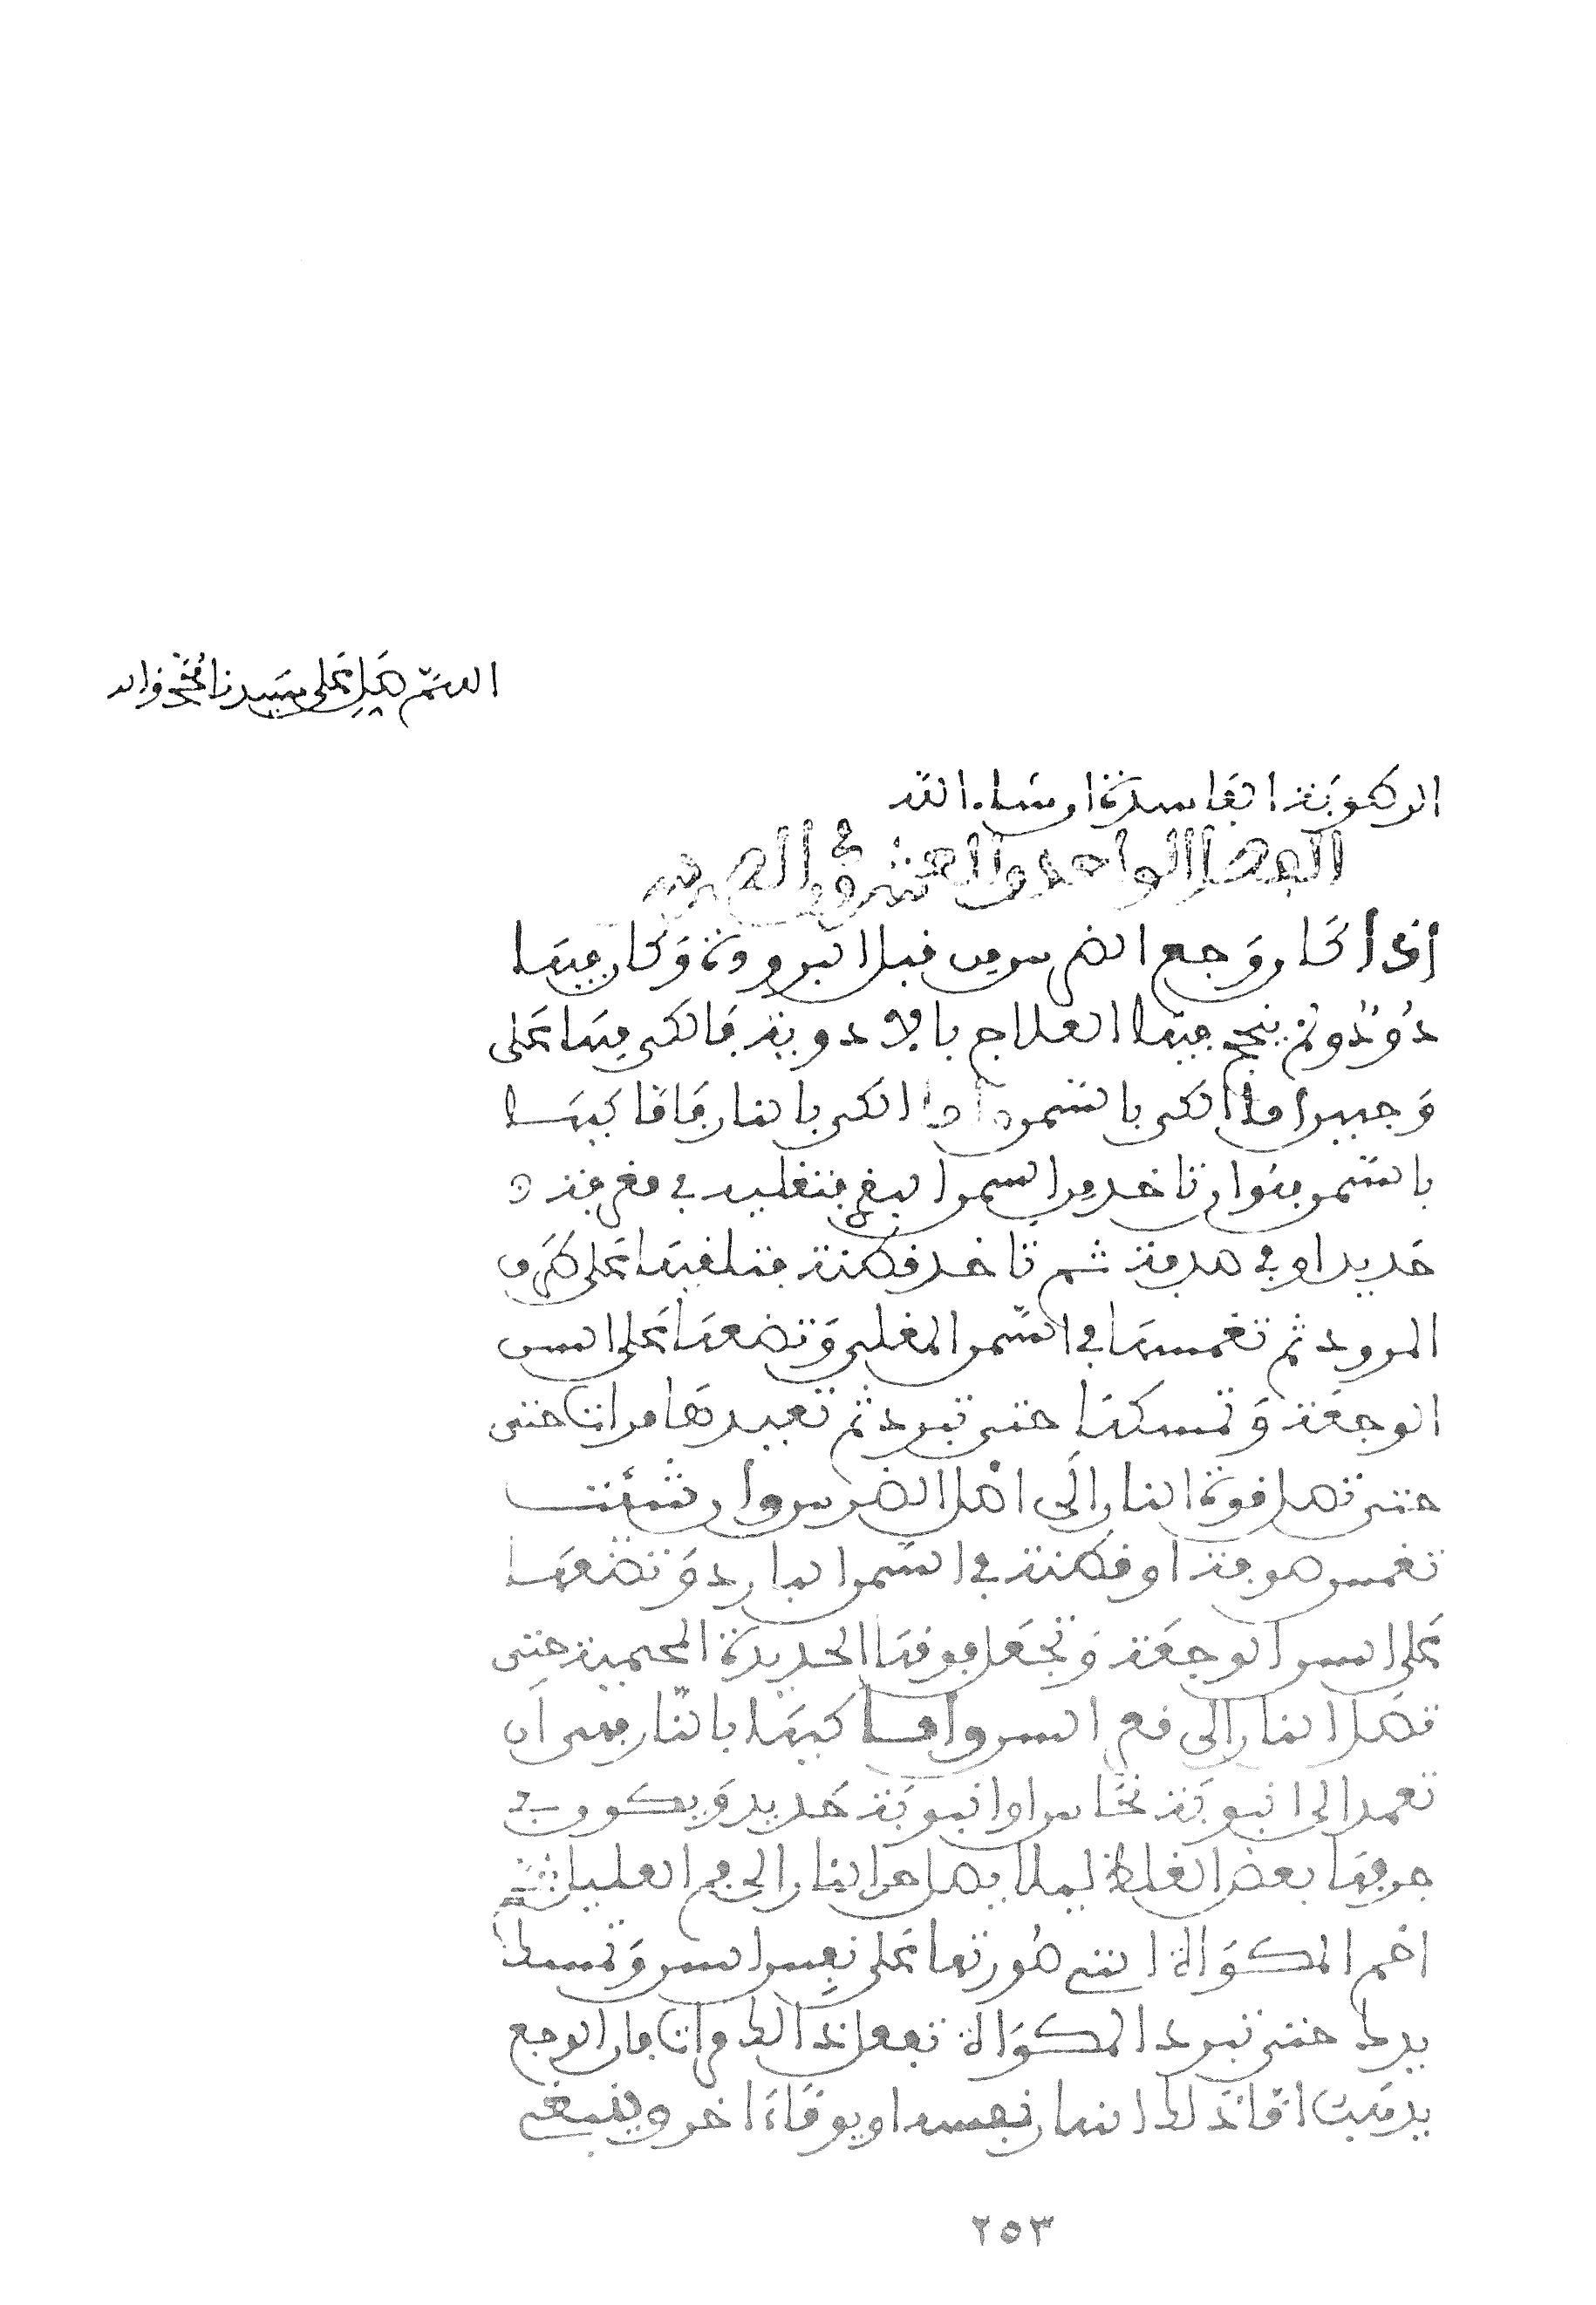 اللهم صل على سيدنا محمد واله
الرطوبة الفاسدة ان شاء الله
الفصل الواحد والعشرون في الضرس
اذا كان وجع الضرس من قبل البرودة وكان فيها
دود ولم ينجح فيها العلاج بالادوية فالكي فيها على
وجهين اما الكي بالسمن واما الكي بالنار فاما كيها
بالسمن فهو ان تاخذ من السمن البقري فتغليه في مغرفة
حديد او في صدفة ثم تاخذ قطنة فتلفها على طرف
المرود ثم تغمسها في السمن المغلي وتضعها على السن
الوجعة وتمسكها حتى تبرد ثم تعيدها مرات حتى
حتى تصل قوة النار الى اصل الضرس وان شئت
تغمس صوفة او قطنة في السمن البارد وتضعها
على السن الوجعة وتجعل فوقها الحديدة المحمية حتى
تصل النار الى قعر السن واما كيها بالنار فهي ان
تعمد الى انبوبة نحاس او انبوبة حديد ويكون في
جرمها بعض الغلظ ليلا يصل حر النار الى فم العليل ثم
احم المكواة التي صورتها على نفس السن وتمسك
يدك حتى تبرد المكواة تفعل ذالك مرات فان الوجع
يذهب اما ذلك النهار نفسه او يوما اخر وينبغي
٢٥٣